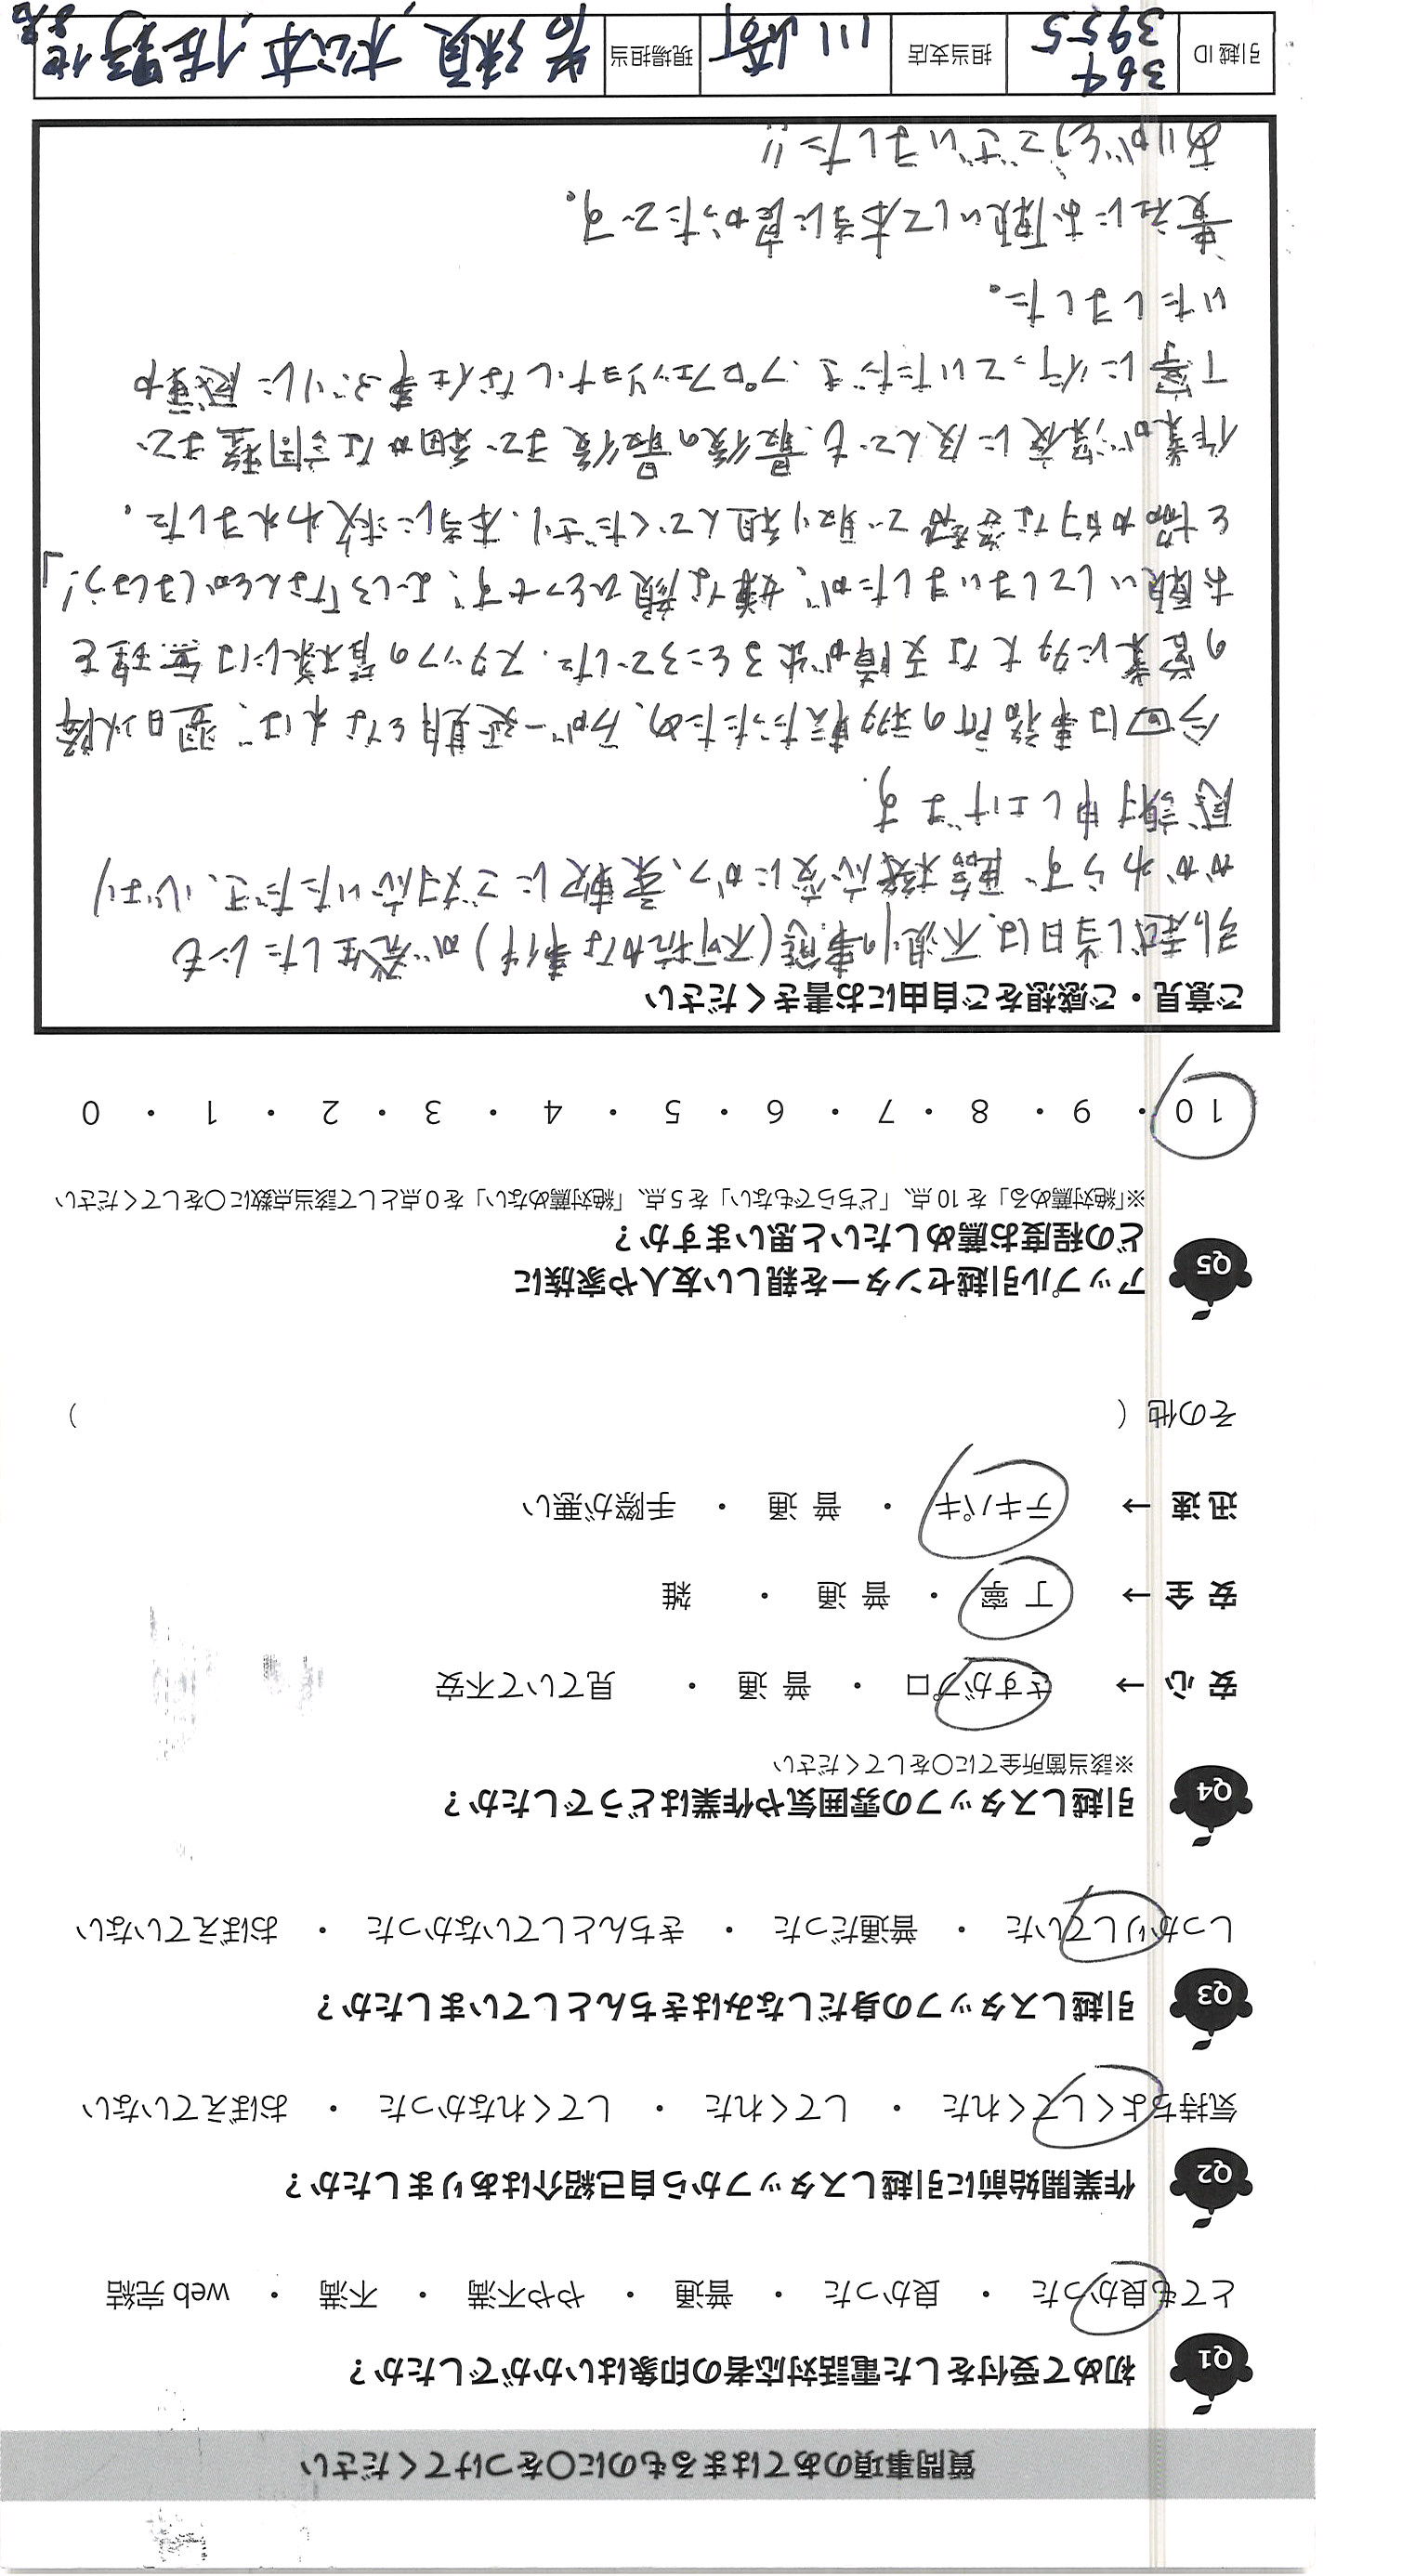 質問事項のあてはまるものに○をつけてください
Q1 初めて受付をした電話対応者の印象はいかがでしたか？
とても良かった ・ 良かった ・ 普通 ・ やや不満 ・ 不満 ・ web 完結
Q2 作業開始前に引越しスタッフから自己紹介はありましたか？
気持ちよくしてくれた ・ してくれた ・ してくれなかった ・ おぼえていない
Q3 引越しスタッフの身だしなみはきちんとしていましたか？
しっかりしていた ・ 普通だった ・ きちんとしていなかった ・ おぼえていない
Q4 引越しスタッフの雰囲気や作業はどうでしたか？
※該当箇所全てに○をしてください
安 心 → さすがプロ ・ 普 通 ・ 見ていて不安
安 全 → 丁 寧 ・ 普 通 ・ 雑
迅 速 → テキパキ ・ 普 通 ・ 手際が悪い
その他（ ）
Q5 アップル引越センターを親しい友人や家族に
どの程度お薦めしたいと思いますか？
※「絶対薦める」を 10 点、「どちらでもない」を 5 点、「絶対薦めない」を 0 点として該当点数に○をしてください
10 ・ 9 ・ 8 ・ 7 ・ 6 ・ 5 ・ 4 ・ 3 ・ 2 ・ 1 ・ 0
ご意見・ご感想をご自由にお書きください
引っ越し当日は、不測の事態（不可抗力な事件）が発生したにも
かかわらず、臨機応変にかつ、柔軟にご対応いただき、心より
感謝申し上げます。
今回は事務所の移転だったため、万が一延期となれば、翌日以降
の営業に多大な支障が出るところでした。スタッフの皆様には無理を
お願いしてしまいましたが、嫌な顔ひとつせず、むしろ「なんとかしましょう！」
と協力的な姿勢で取り組んでくださり、本当に救われました。
作業が深夜に及んでも、最後の最後まで細かな調整まで
丁寧に行っていただき、プロフェッショナルな仕事ぶりに感動
いたしました。
貴社にお願いして本当に良かったです。
ありがとうございました!!
引越 ID 364 3955 担当支店 川崎 現場担当 若須, 松本, 佐野 他